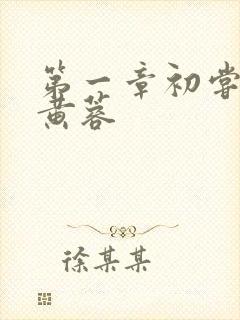 第一章初尝
黄蓉
徐某某